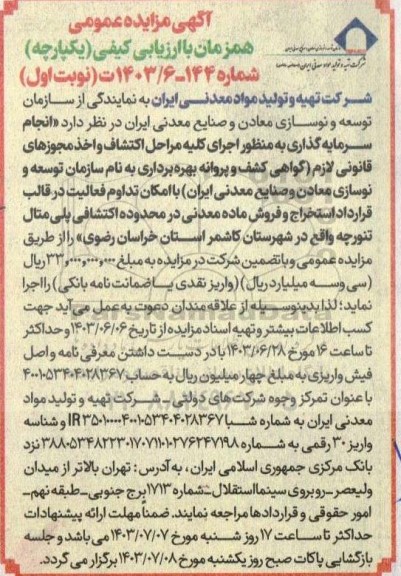 آگهی مزایده عمومی
همزمان با ارزیابی کیفی (یکپارچه)
شماره ۱۴۴-۱۴۰۳/۶ت (نوبت اول)
شرکت تهیه و تولید مواد معدنی ایران به نمایندگی از سازمان
توسعه و نوسازی معادن و صنایع معدنی ایران در نظر دارد «انجام
سرمایه گذاری به منظور اجرای کلیه مراحل اکتشاف و اخذ مجوزهای
قانونی لازم (گواهی کشف و پروانه بهره برداری به نام سازمان توسعه و
نوسازی معادن و صنایع معدنی ایران) با امکان تداوم فعالیت در قالب
قرارداد استخراج و فروش ماده معدنی در محدوده اکتشافی پلی متال
تنورچه واقع در شهرستان کاشمر استان خراسان رضوی» را از طریق
مزایده عمومی و با تضمین شرکت در مزایده به مبلغ ۳۳,۰۰۰,۰۰۰,۰۰۰ ریال
(سی و سه میلیارد ریال) (واریز نقدی یا ضمانت نامه بانکی) را اجرا
نماید؛ لذا بدینوسیله از علاقه مندان دعوت به عمل می آید جهت
کسب اطلاعات بیشتر و تهیه اسناد مزایده از تاریخ ۱۴۰۳/۰۶/۰۶ و حداکثر
تا ساعت ۱۶ مورخ ۱۴۰۳/۰۶/۲۸ با در دست داشتن معرفی نامه و اصل
فیش واریزی به مبلغ چهار میلیون ریال به حساب ۴۰۰۱۰۵۳۴۰۴۰۲۸۳۶۷
با عنوان تمرکز وجوه شرکت های دولتی - شرکت تهیه و تولید مواد
معدنی ایران به شماره شبا IR ۳۵۰۱۰۰۰۰۴۰۰۱۰۵۳۴۰۴۰۲۸۳۶۷ و شناسه
واریز ۳۰ رقمی به شماره ۳۸۸۰۵۳۴۸۲۲۳۰۱۷۰۷۱۱۰۱۰۲۷۶۲۴۷۱۹۸ نزد
بانک مرکزی جمهوری اسلامی ایران، به آدرس: تهران بالاتر از میدان
ولیعصر - روبروی سینما استقلال - شماره ۱۷۱۳ برج جنوبی - طبقه نهم -
امور حقوقی و قراردادها مراجعه نمایند. ضمنا مهلت ارائه پیشنهادات
حداکثر تا ساعت ۱۷ روز شنبه مورخ ۱۴۰۳/۰۷/۰۷ می باشد و جلسه
بازگشایی پاکات صبح روز یکشنبه مورخ ۱۴۰۳/۰۷/۰۸ برگزار می گردد.